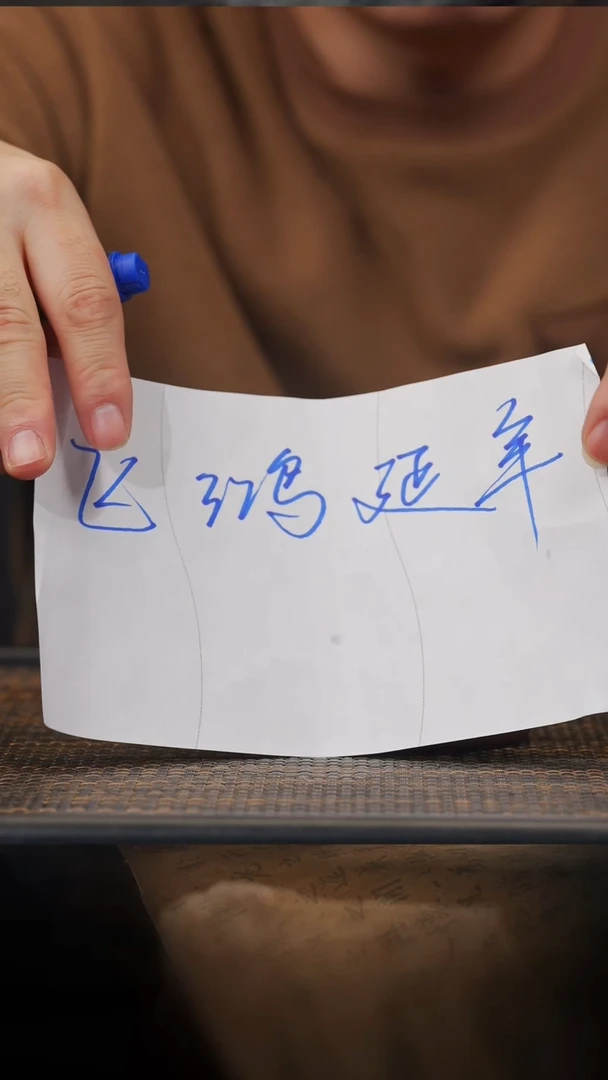 飞鸿延年